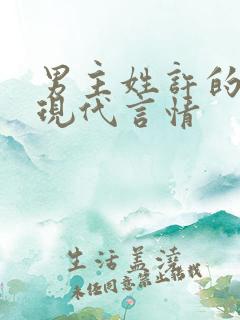 男主姓許的
現代言情
生活盖澆
未经同意禁止搭我